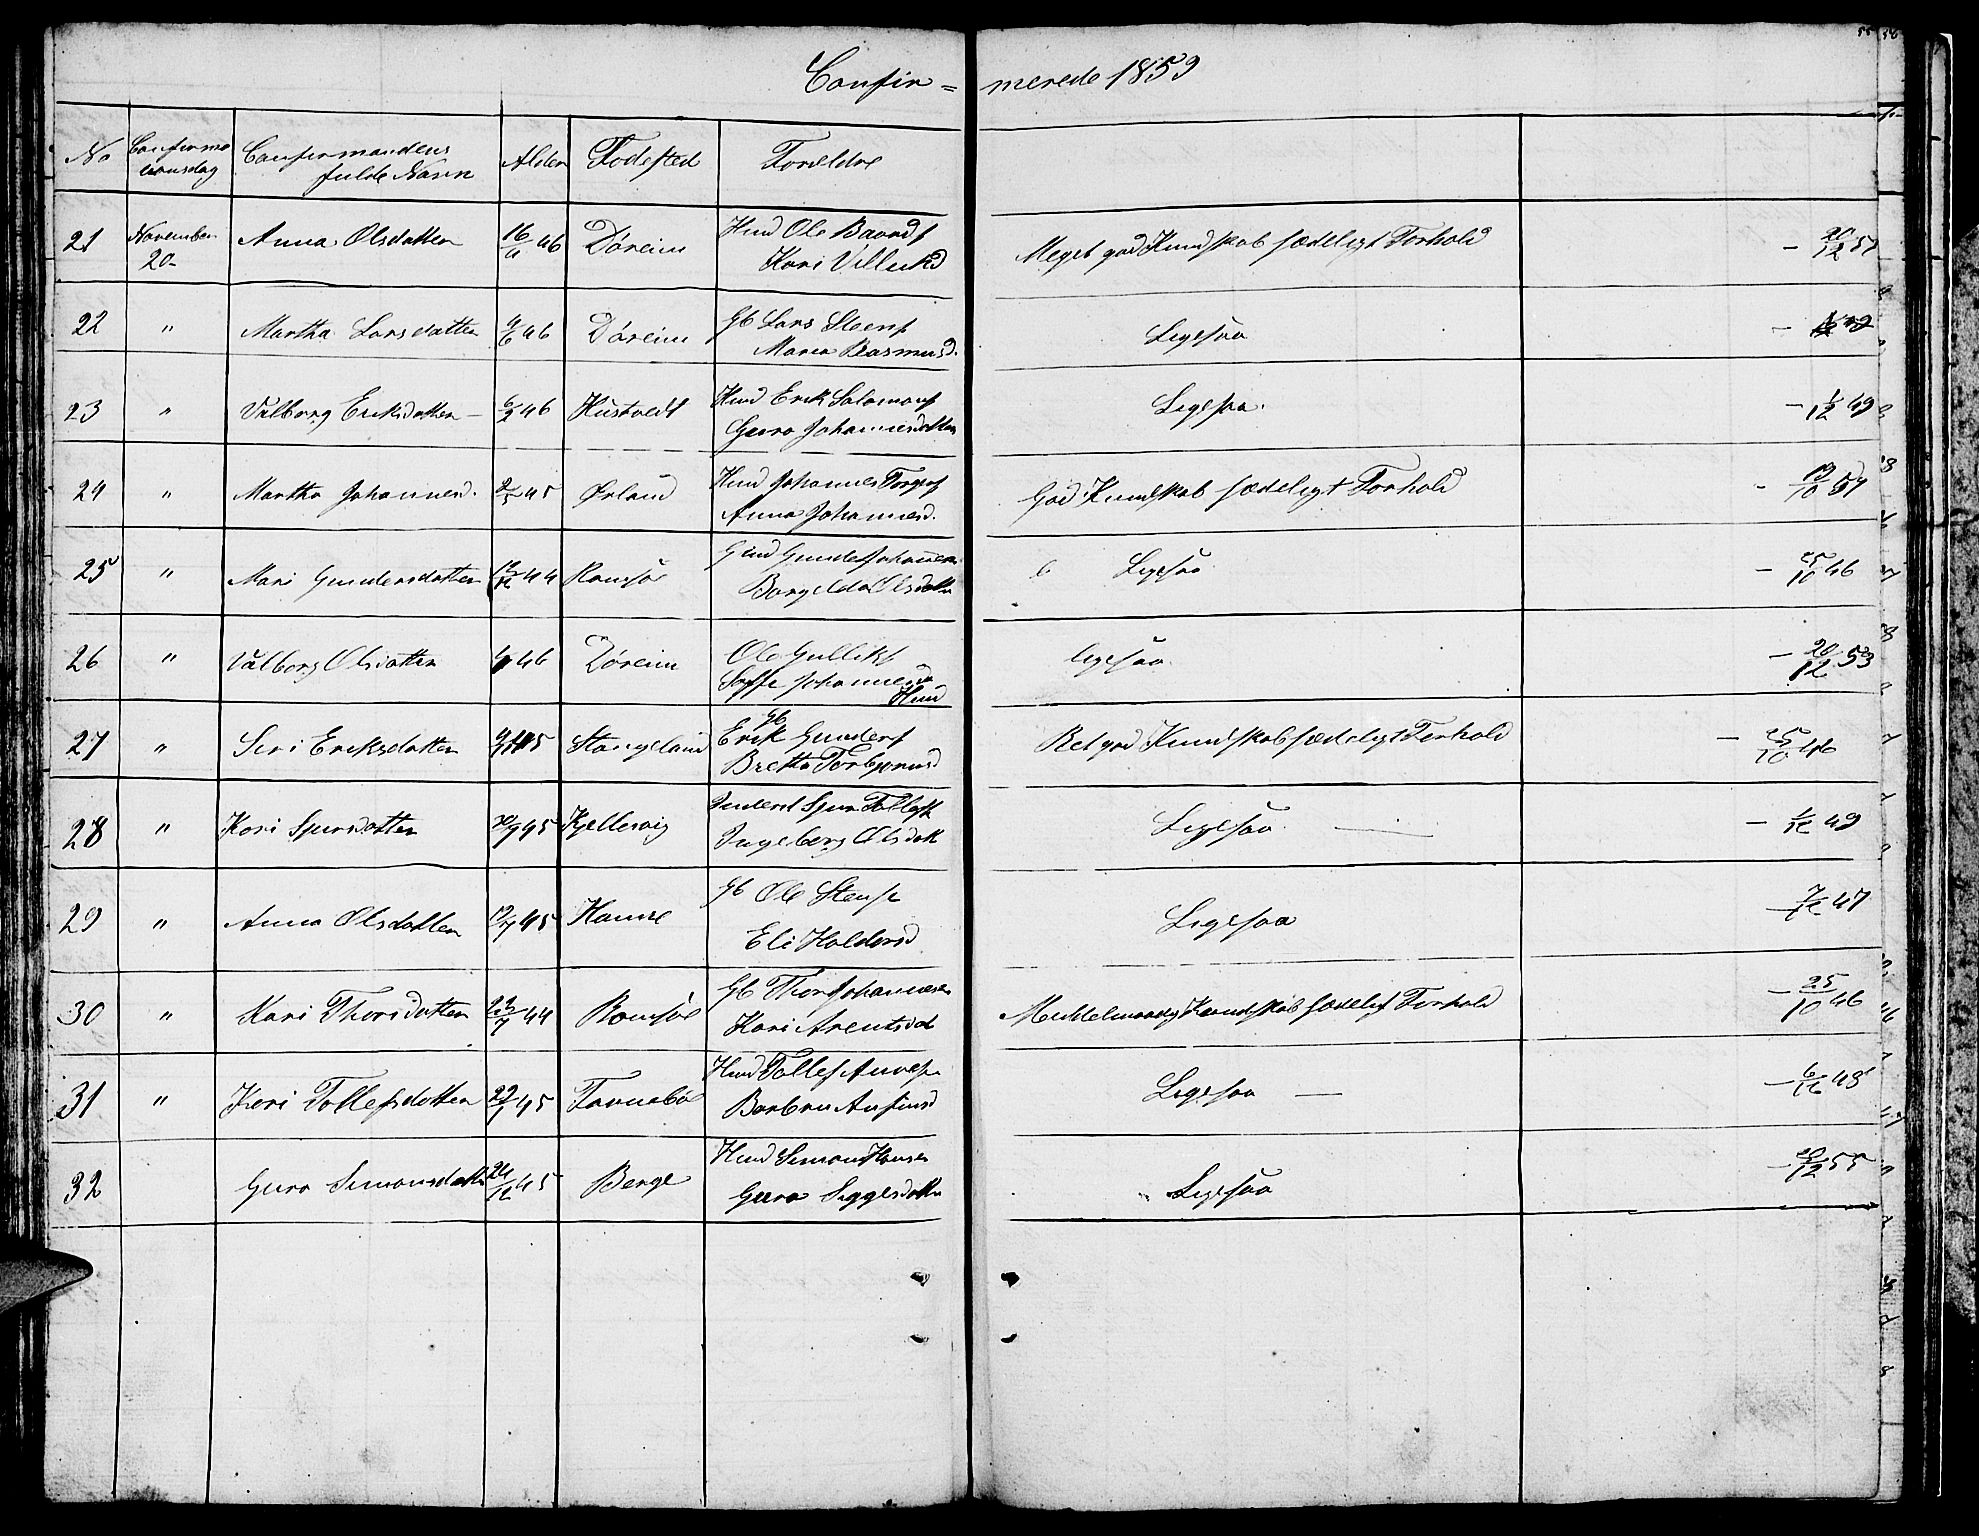 Confir= merede 1859
No Confirmationsdag Confirmandens fulde Navn Alder Fødested Forældre
21 November 20- Anna Olsdatter 16/11 46 Döreim Hmd Ole Baards Kari Villiksd Meget god Kundskab sædeligt Forhold - 20/12 57
22 " Martha Larsdatter 4/6 46 Döreim Gb Lars Steens Maria Rasmusd. Ligesaa
23 " Valborg Eriksdatter 6/2 46 Hustvedt Hmd Erik Salamons Guro Johannesdatter Ligesaa. - 1/12 49
24 " Martha Johannesd. 45 Ørland Hmd Johannes Anna Johannesd. God Kundskab sædeligt Forhold - 19/10 57
25 " Mari Gundersdatter 44 Ramsöe Gunder Johannes Borgelda Olsdatter Ligesaa - 25/10 46
26 " Valborg Olsdatter 46 Döreim Ole Gulliks Johannesd Hmd ligesaa - 20/12 53
27 " Siri Eriksdatter 45 Stangeland Gb Erik Gunders Bretta Torbjørnsd Ret god Kundskab sædeligt Forhold - 25/10 46
28 " Kari Spersdatter 45 Kjellesvig Inderst Ingeborg Olsdatt Ligesaa - 1/12 49
29 " Anna Olsdatter 45 Gb Ole Stens Eli Haldorsd Ligesaa - 7/12 47
30 " Kari Thorsdatter 23/7 44 Ramsöe Gb Thor Johannesen Kari Arentsd Middelmaadig Kundskab sædeligt Forhold - 25/10 46
31 " Kari Tollefsdatter 22/1 45 Hmd Tollef Barbru Ligesaa - 6/12 48
32 Guro Simonsdatter 24/12 45 Berge Hmd Simon Hansen Guro Siggesdatter " Ligesaa - 20/12 55